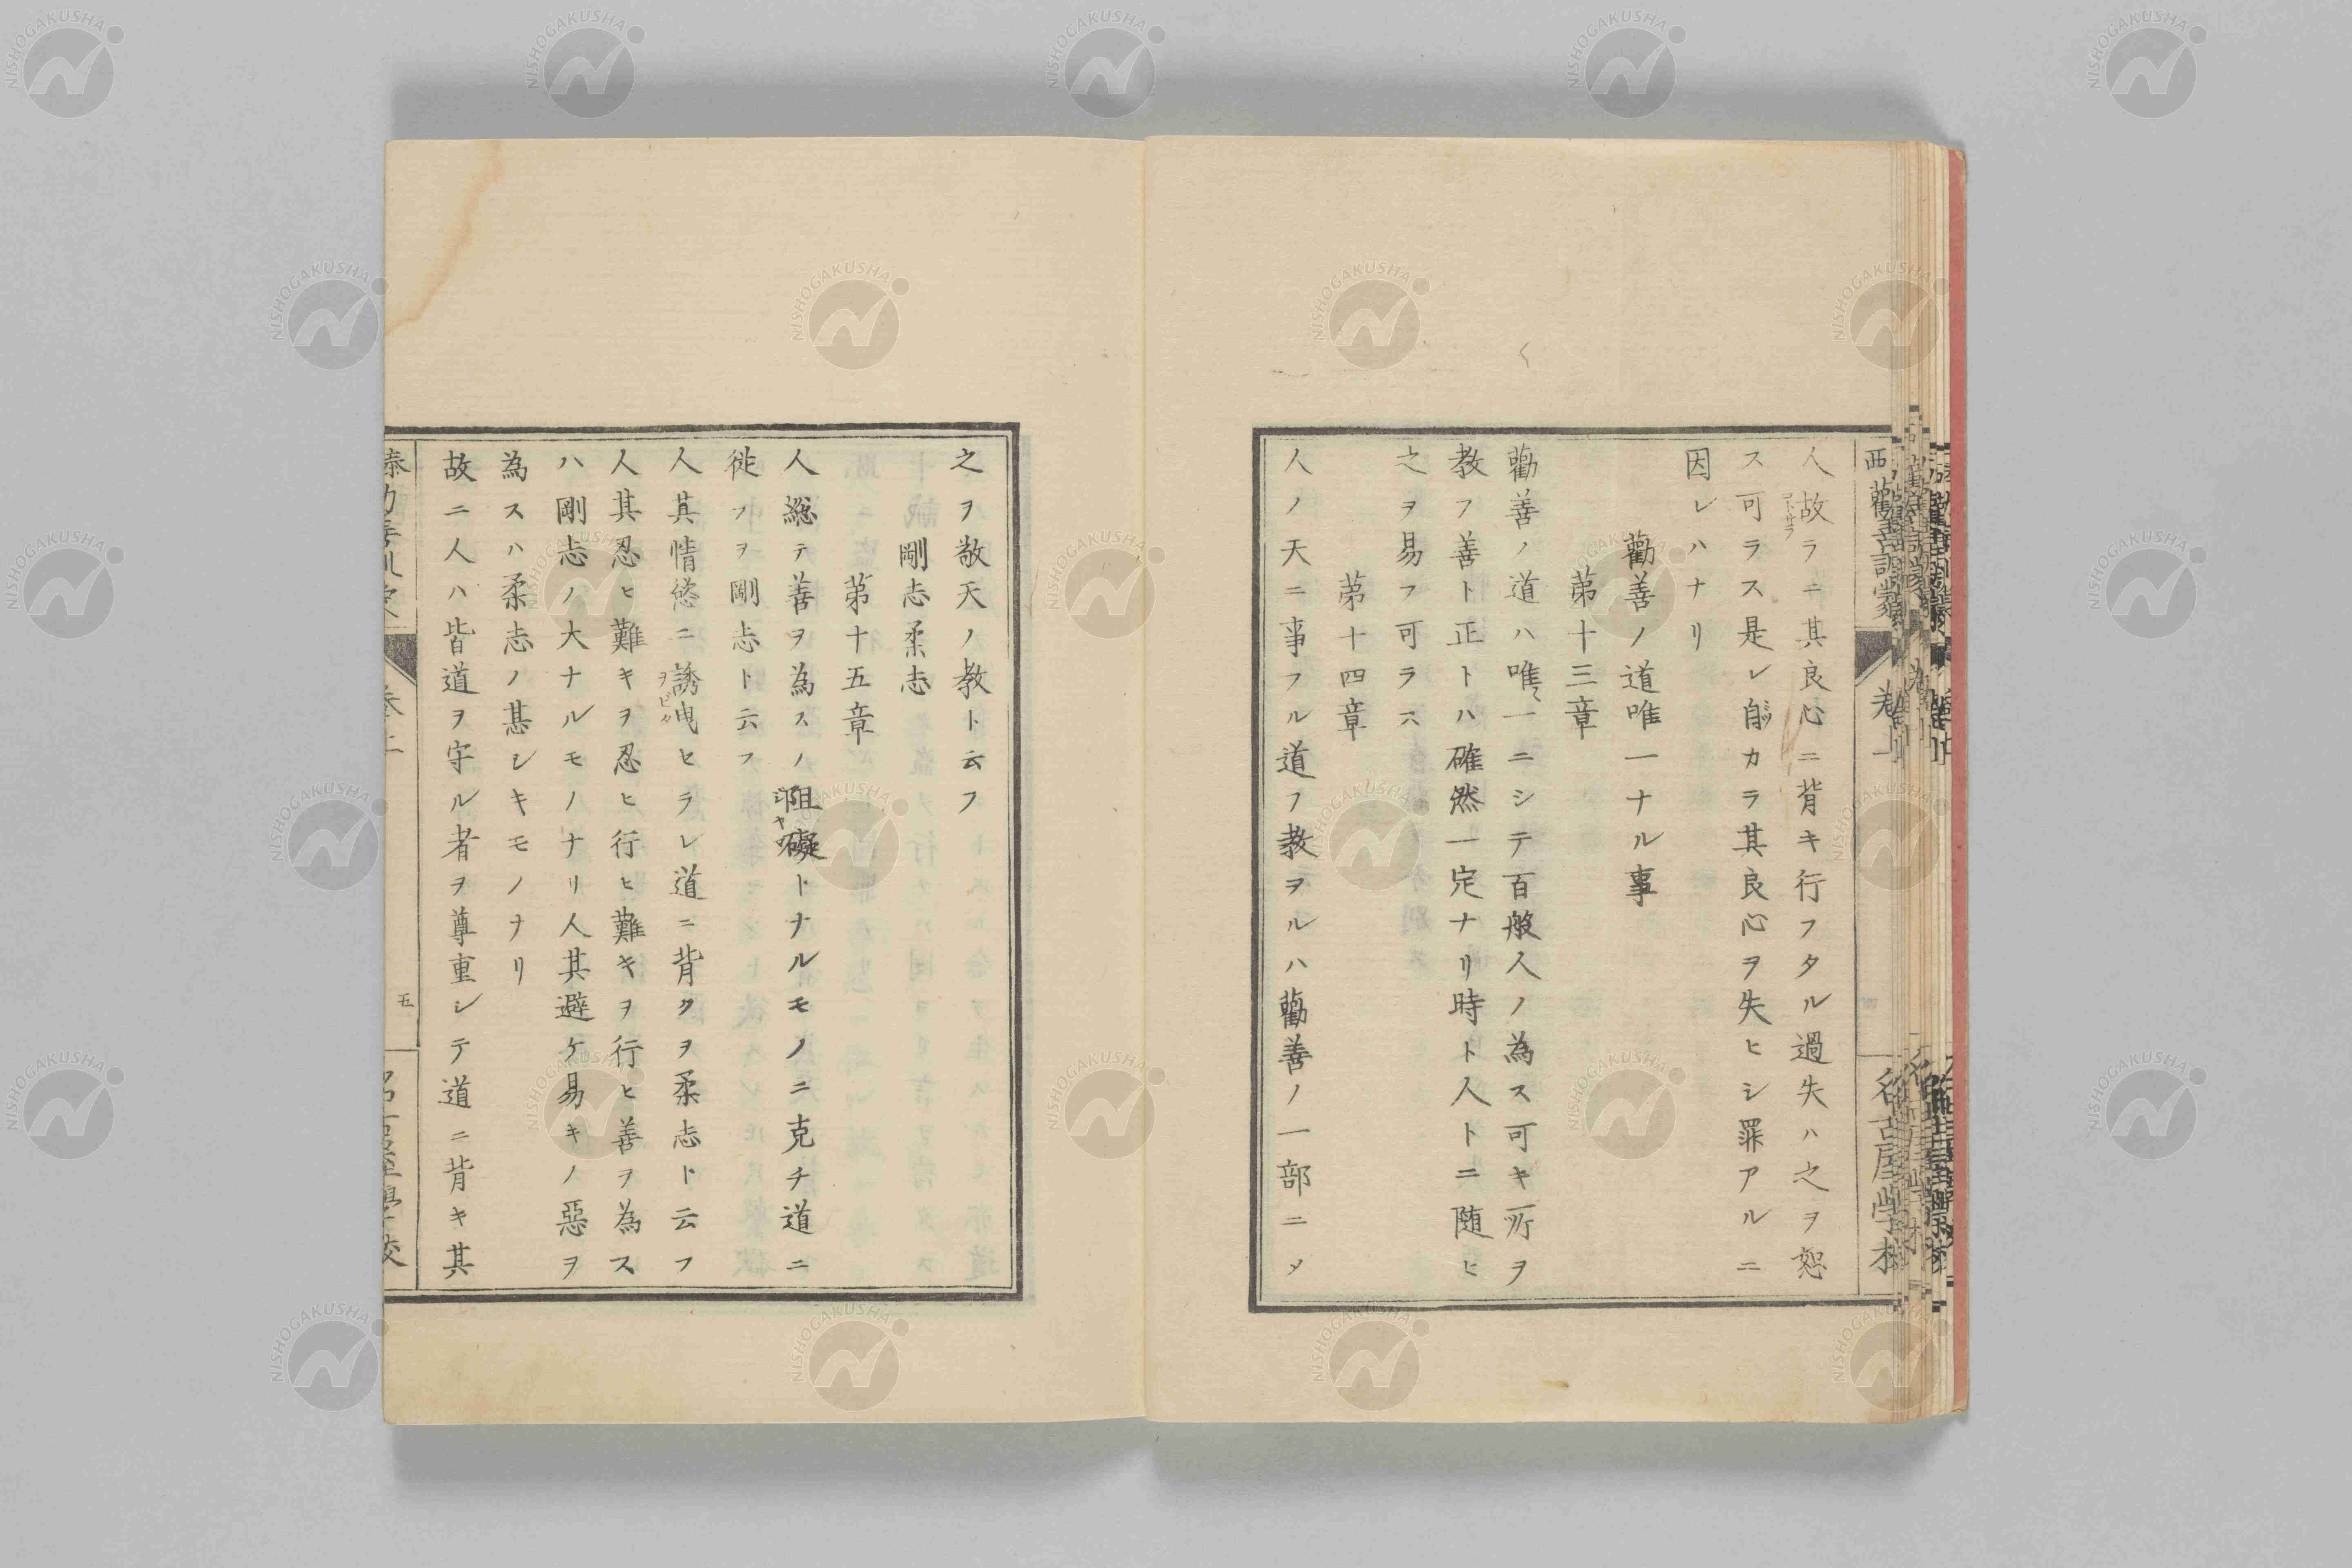 人故ラニ其良心ニ背キ行フタル過失ハ之ヲ恕
ス可ラス是レ自カラ其良心ヲ失ヒシ罪アルニ
因レハナリ
勸善ノ道唯一ナル事
苐十三章
勸善ノ道ハ唯一ニシテ百般人ノ為ス可キ所ヲ
教フ善ト正トハ確然一定ナリ時ト人トニ随ヒ
之ヲ易フ可ラス
苐十四章
人ノ天ニ事フル道フ教ヲルハ勸善ノ一部ニメ
之ヲ敬天ノ教ト云フ
剛志柔志
苐十五章
人総テ善ヲ為スノ阻礙トナルモノニ克チ道ニ
従フヲ剛志ト云フ
人其情慾ニ誘ヒラレ道ニ背クヲ柔志ト云フ
人其忍ヒ難キヲ忍ヒ行ヒ難キヲ行ヒ善ヲ為ス
ハ剛志ノ大ナルモノナリ人其避ケ易キノ惡ヲ
為スハ柔志ノ甚シキモノナリ
故ニ人ハ皆道ヲ守ル者ヲ尊重シテ道ニ背キ其
五
NISHOGAKUSHA